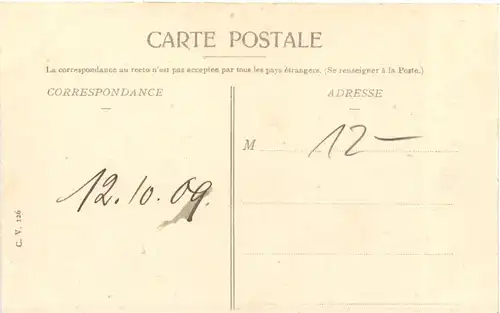 CARTE POSTALE
La correspondance au recto n'est pas acceptée par tous les pays étrangers. (Se renseigner à la Poste.)
CORRESPONDANCE
ADRESSE
M
12 —
12.10.09.
C. V. 126